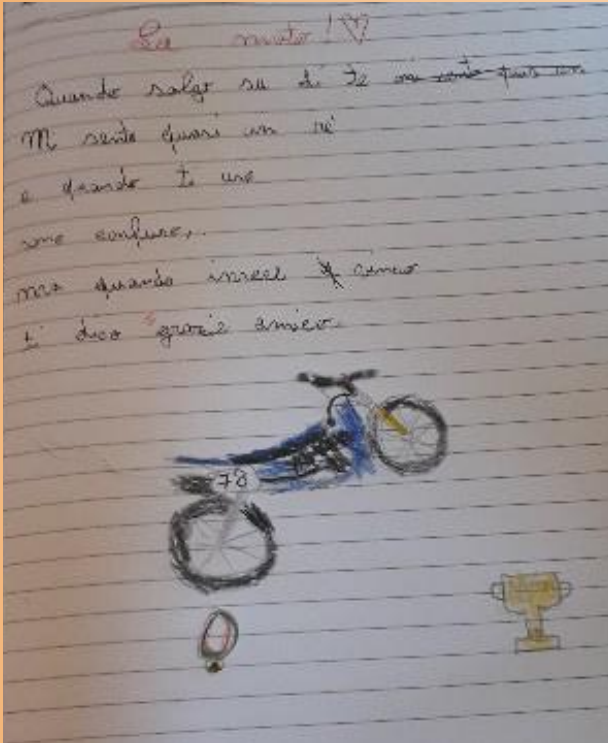 La moto!
Quando salgo su di te mi sento quasi un
Mi sento quasi un re
e quando ti uso
sono confuso,..
ma quando invece vinco
ti dico grazie amico.
78